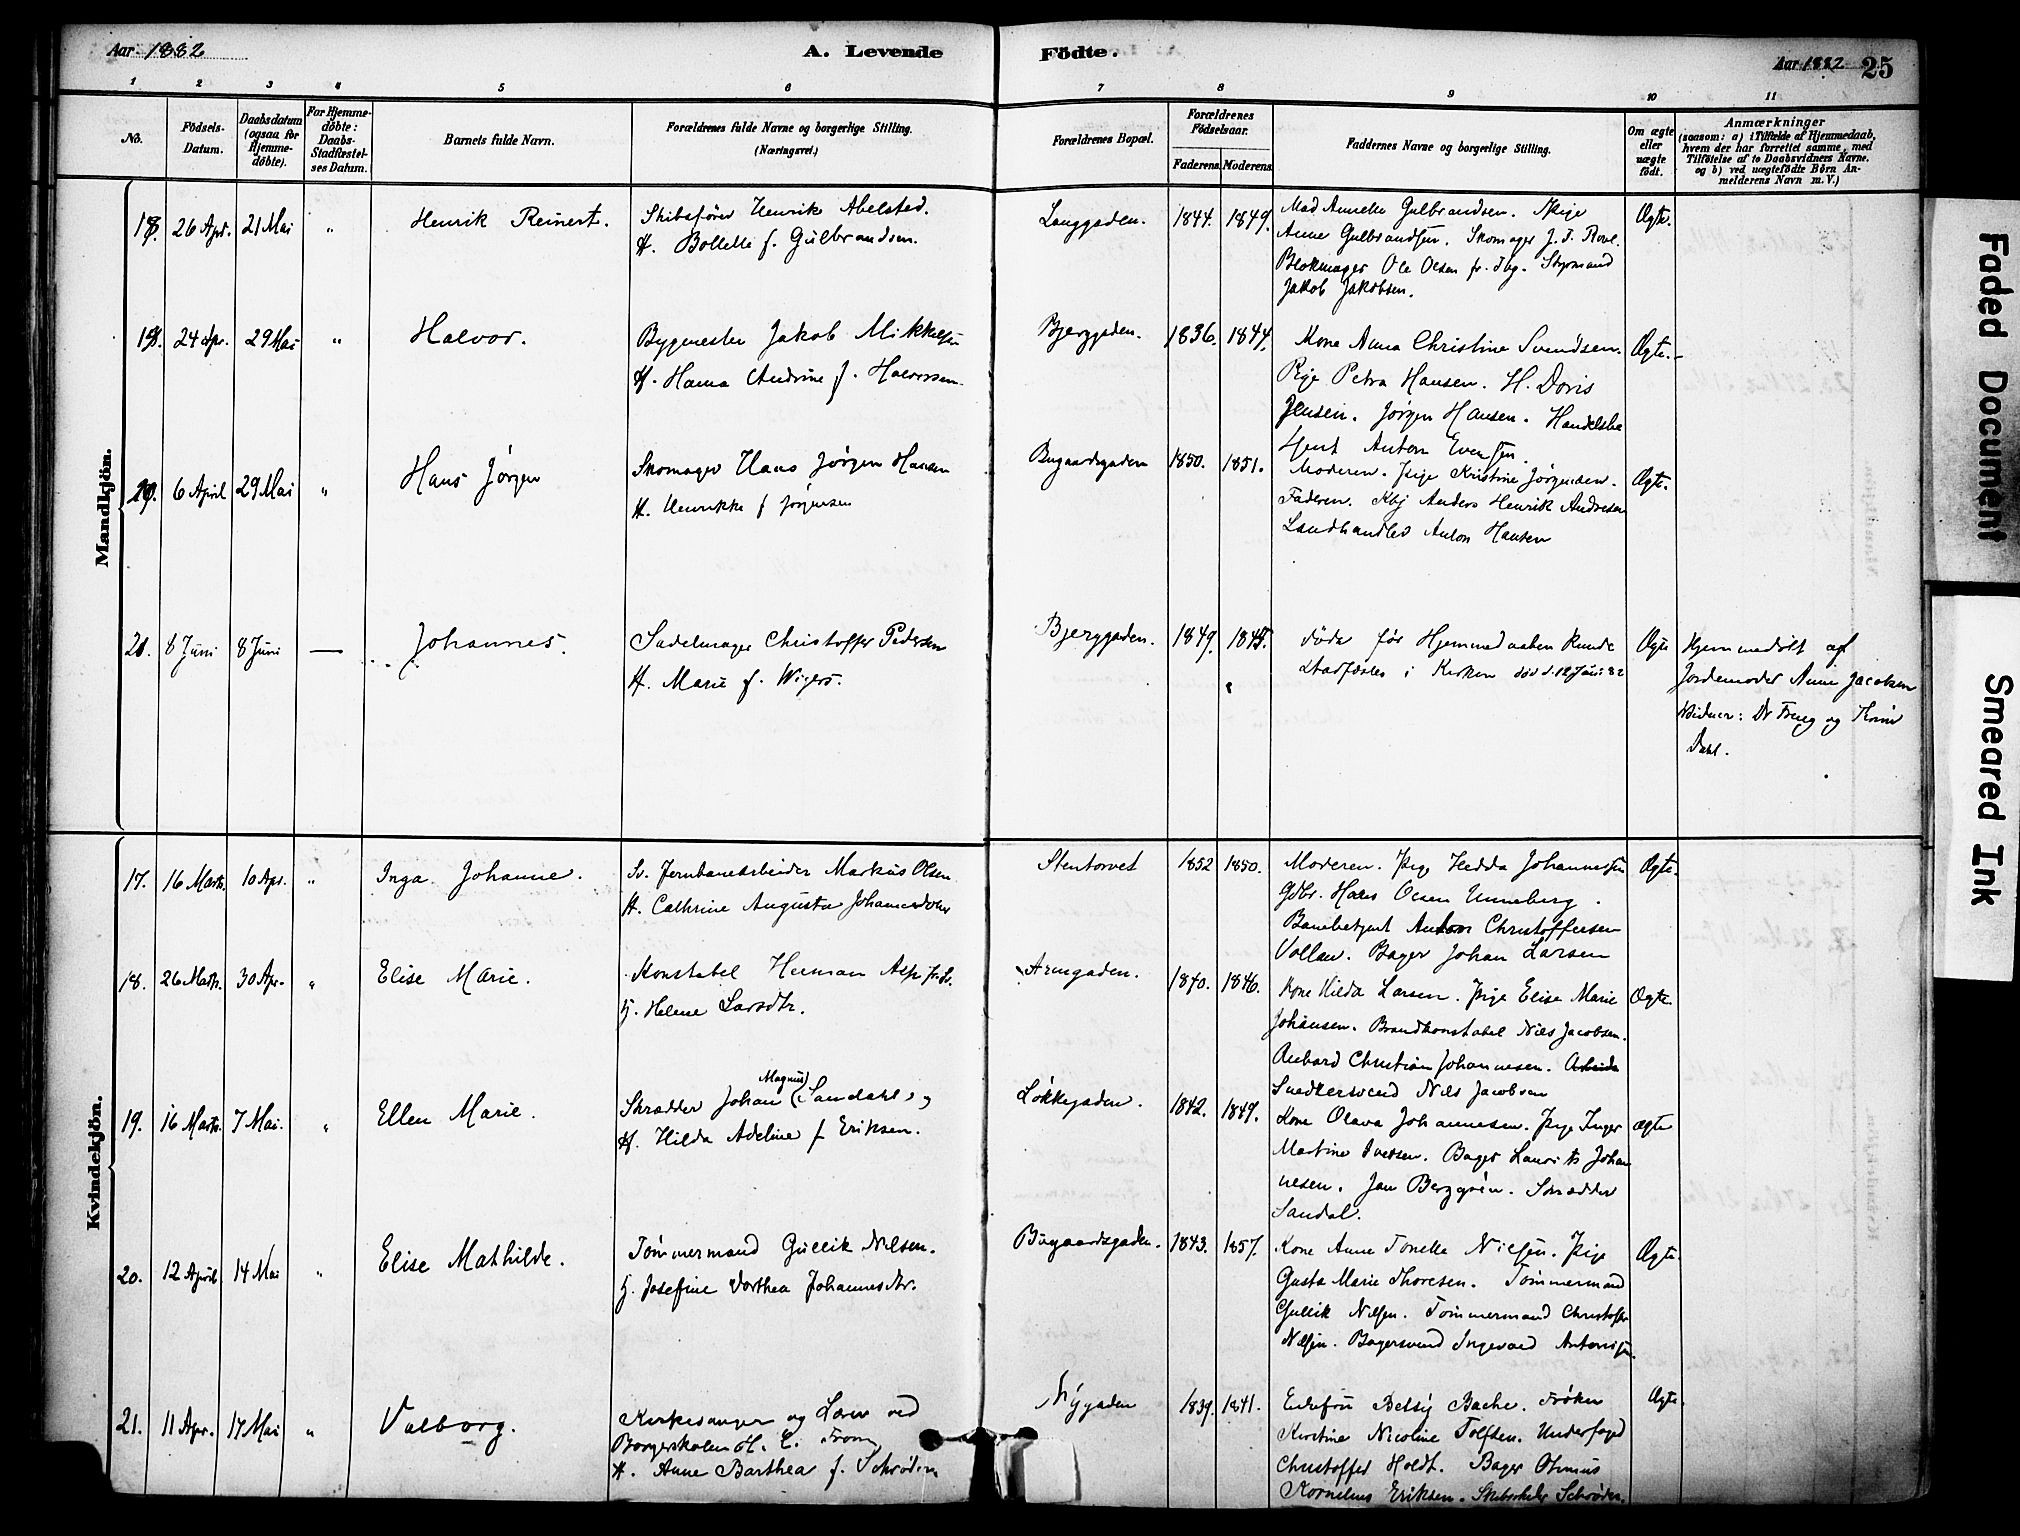 Aar 1882
A. Levende
Födte.
Aar 1882 25
1 2 3 4 5 6 7 8 9 10 11
No.
Födsels-
Datum.
Daabsdatum
(ogsaa for
Hjemme-
döbte).
For Hjemme-
döbte:
Daabs-
Stadfæstel-
ses Datum.
Barnets fulde Navn.
Forældrenes fulde Navne og borgerlige Stilling.
(Næringsvei.)
Forældrenes Bopæl.
Forældrenes
Födselsaar.
Faderens Moderens
Faddernes Navne og borgerlige Stilling.
Om ægte
eller
uægte
födt.
Anmærkninger
(saasom: a) i Tilfælde af Hjemmedaab,
hvem der har forrettet samme, med
Tilföielse af to Daabsvidners Navne.
og b) ved uægtefödte Börn An-
melderens Navn m. V.)
Mandkjön.
26 Apr. 21 Mai " Henrik Reinert. Skibsfører Henrik Abelsted.
H. Bollette f. Gulbrandsen.
Langgaden. 1844. 1849.
Mad Annette Gulbrandsen. Pige
Anne Gulbrandsen. Skomager J. T.
Blokmager Ole Olsen. Styrmand
Jakob Jakobsen.
Ægte.
24 Apr. 29 Mai " Halvor. Bygmester Jakob Mikkelsen
H. Hanna Andrine f. Halvorsen.
Bjerggaden. 1836. 1844.
Kone Anna Christine Svendsen.
Pige Petra Hansen. H. Doris
Jensen. Jørgen Hansen. Handelsbe
tjent Anton Evensen.
Ægte.
6 April 29 Mai " Hans Jørgen Skomager Hans Jørgen Hansen
H. Henrikke f Jørgensen
Bugaardsgaden 1850. 1851.
Moderen. Pige Kristine Jørgensen.
Faderen. Kbj Anders Henrik Andresen
Landhandler Anton Hansen
Ægte.
21. 8 Juni 8 Juni — Johannes. Sadelmager Christoffer Pedersen
H. Marie f. Wigers.
Bjerggaden. 1849. 1845.
døde før Hjemmedaaben kunde
stadfæstes i Kirken død d. 12 Juni 82
Ægte
Hjemmedøbt af
Jordemoder Anne Jacobsen
Vidner: Dr and og
Dahl.
Kvindekjön.
17. 16 Marts. 10 Apr. " Inga Johanne. Sv. Jernbanearbeider Markus Olsen
H. Cathrine Augusta Johannesdatter
Stentorvet 1852 1850.
Moderen. Pige Hedda Johannessen
Gdbr. Hans Olsen Unneberg.
Banebetjent Anton Christoffersen
Vollan. Bager Johan Larsen
Ægte.
18. 26 Marts. 30 Apr. " Elise Marie. Konstabel Herman Asp
H. Helene Larsdtr.
Armgaden. 1840. 1846.
Kone Hilda Larsen. Pige Elise Marie
Johansen. Brandkonstabel Nils Jacobsen.
Christian Johannesen.
Snedkersvend Nils Jacobsen
Ægte.
19. 16 Marts. 7 Mai. " Ellen Marie. Skrædder Johan (Magnus) Sandahl og
H. Hilda Adeline f Eriksen.
Løkkegaden. 1842. 1849.
Kone Olava Johannesen. Pige Inger
Martine Iversen. Bager Laurits Johan
nesen. Jan Berggrén. Skrædder
Sandal.
ægte
20. 12 April 14 Mai " Elise Mathilde. Tømmermand Gullik Nilsen.
H. Josefine Dorthea Johannesdtr.
Bugaardsgaden. 1843. 1857.
Kone Anne Tonette Nielsen. Pige
Gusta Marie Thoresen. Tømmermand
Gullik Nilsen. Tømmermand Christoffer
Nilsen. Bagersvend Ingevald Antonisen.
Ægte.
21. 11 Apr. 17 Mai " Valborg. Kirkesanger og Lærer ved
Borgerskolen H. C.
H. Anne Barthea f. Schrøder
Nygaden 1839. 1841.
Enkefru Betsy Bache. Frøken
Kirstine Nicoline Tolfsen. Underfoged
Christoffer Holdt. Bager Othinius
Kornelius Eriksen. Skibsreder Schrøder.
Ægte.
Faded Document
Smeared Ink